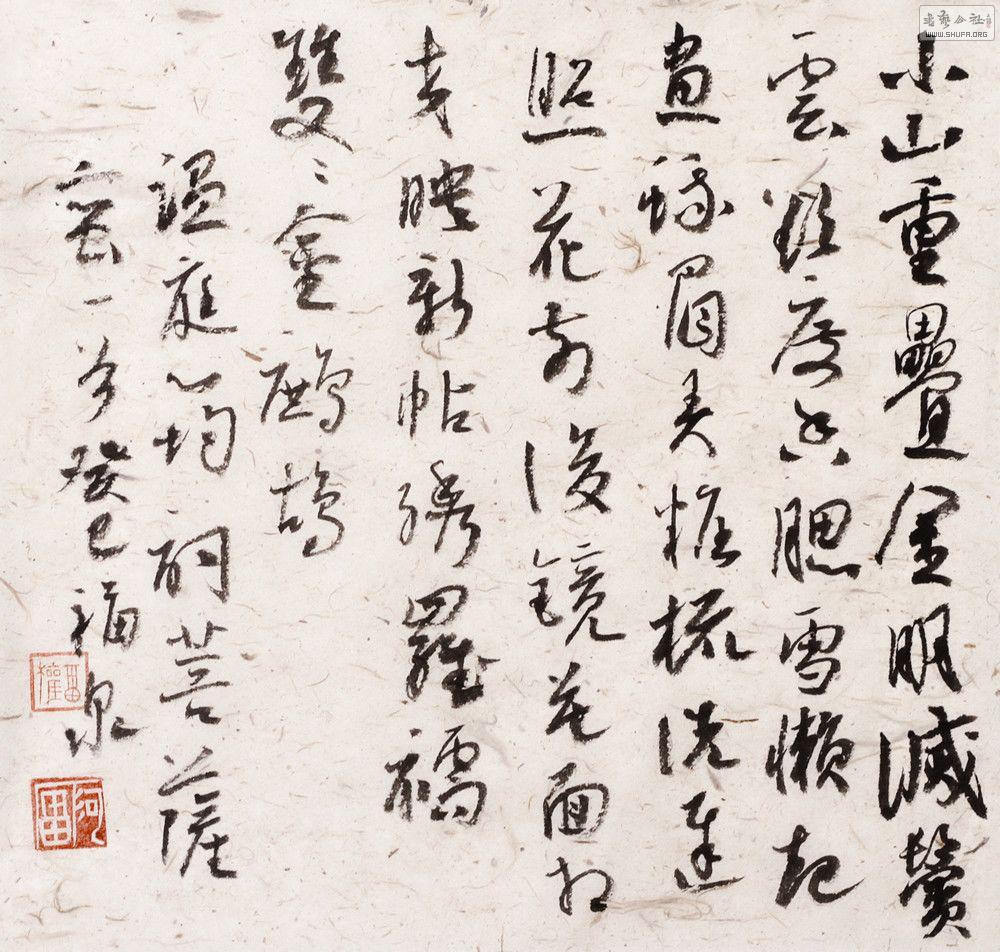 小山重疊金明滅鬢
雲欲度香腮雪懶起
畫蛾眉弄粧梳洗遲
照花前後鏡花面相
交映新帖綉羅襦
雙〻金鷓鴣
溫庭筠詞菩薩
蠻一首癸巳福泉
書藝公社
WWW.SHUFA.ORG